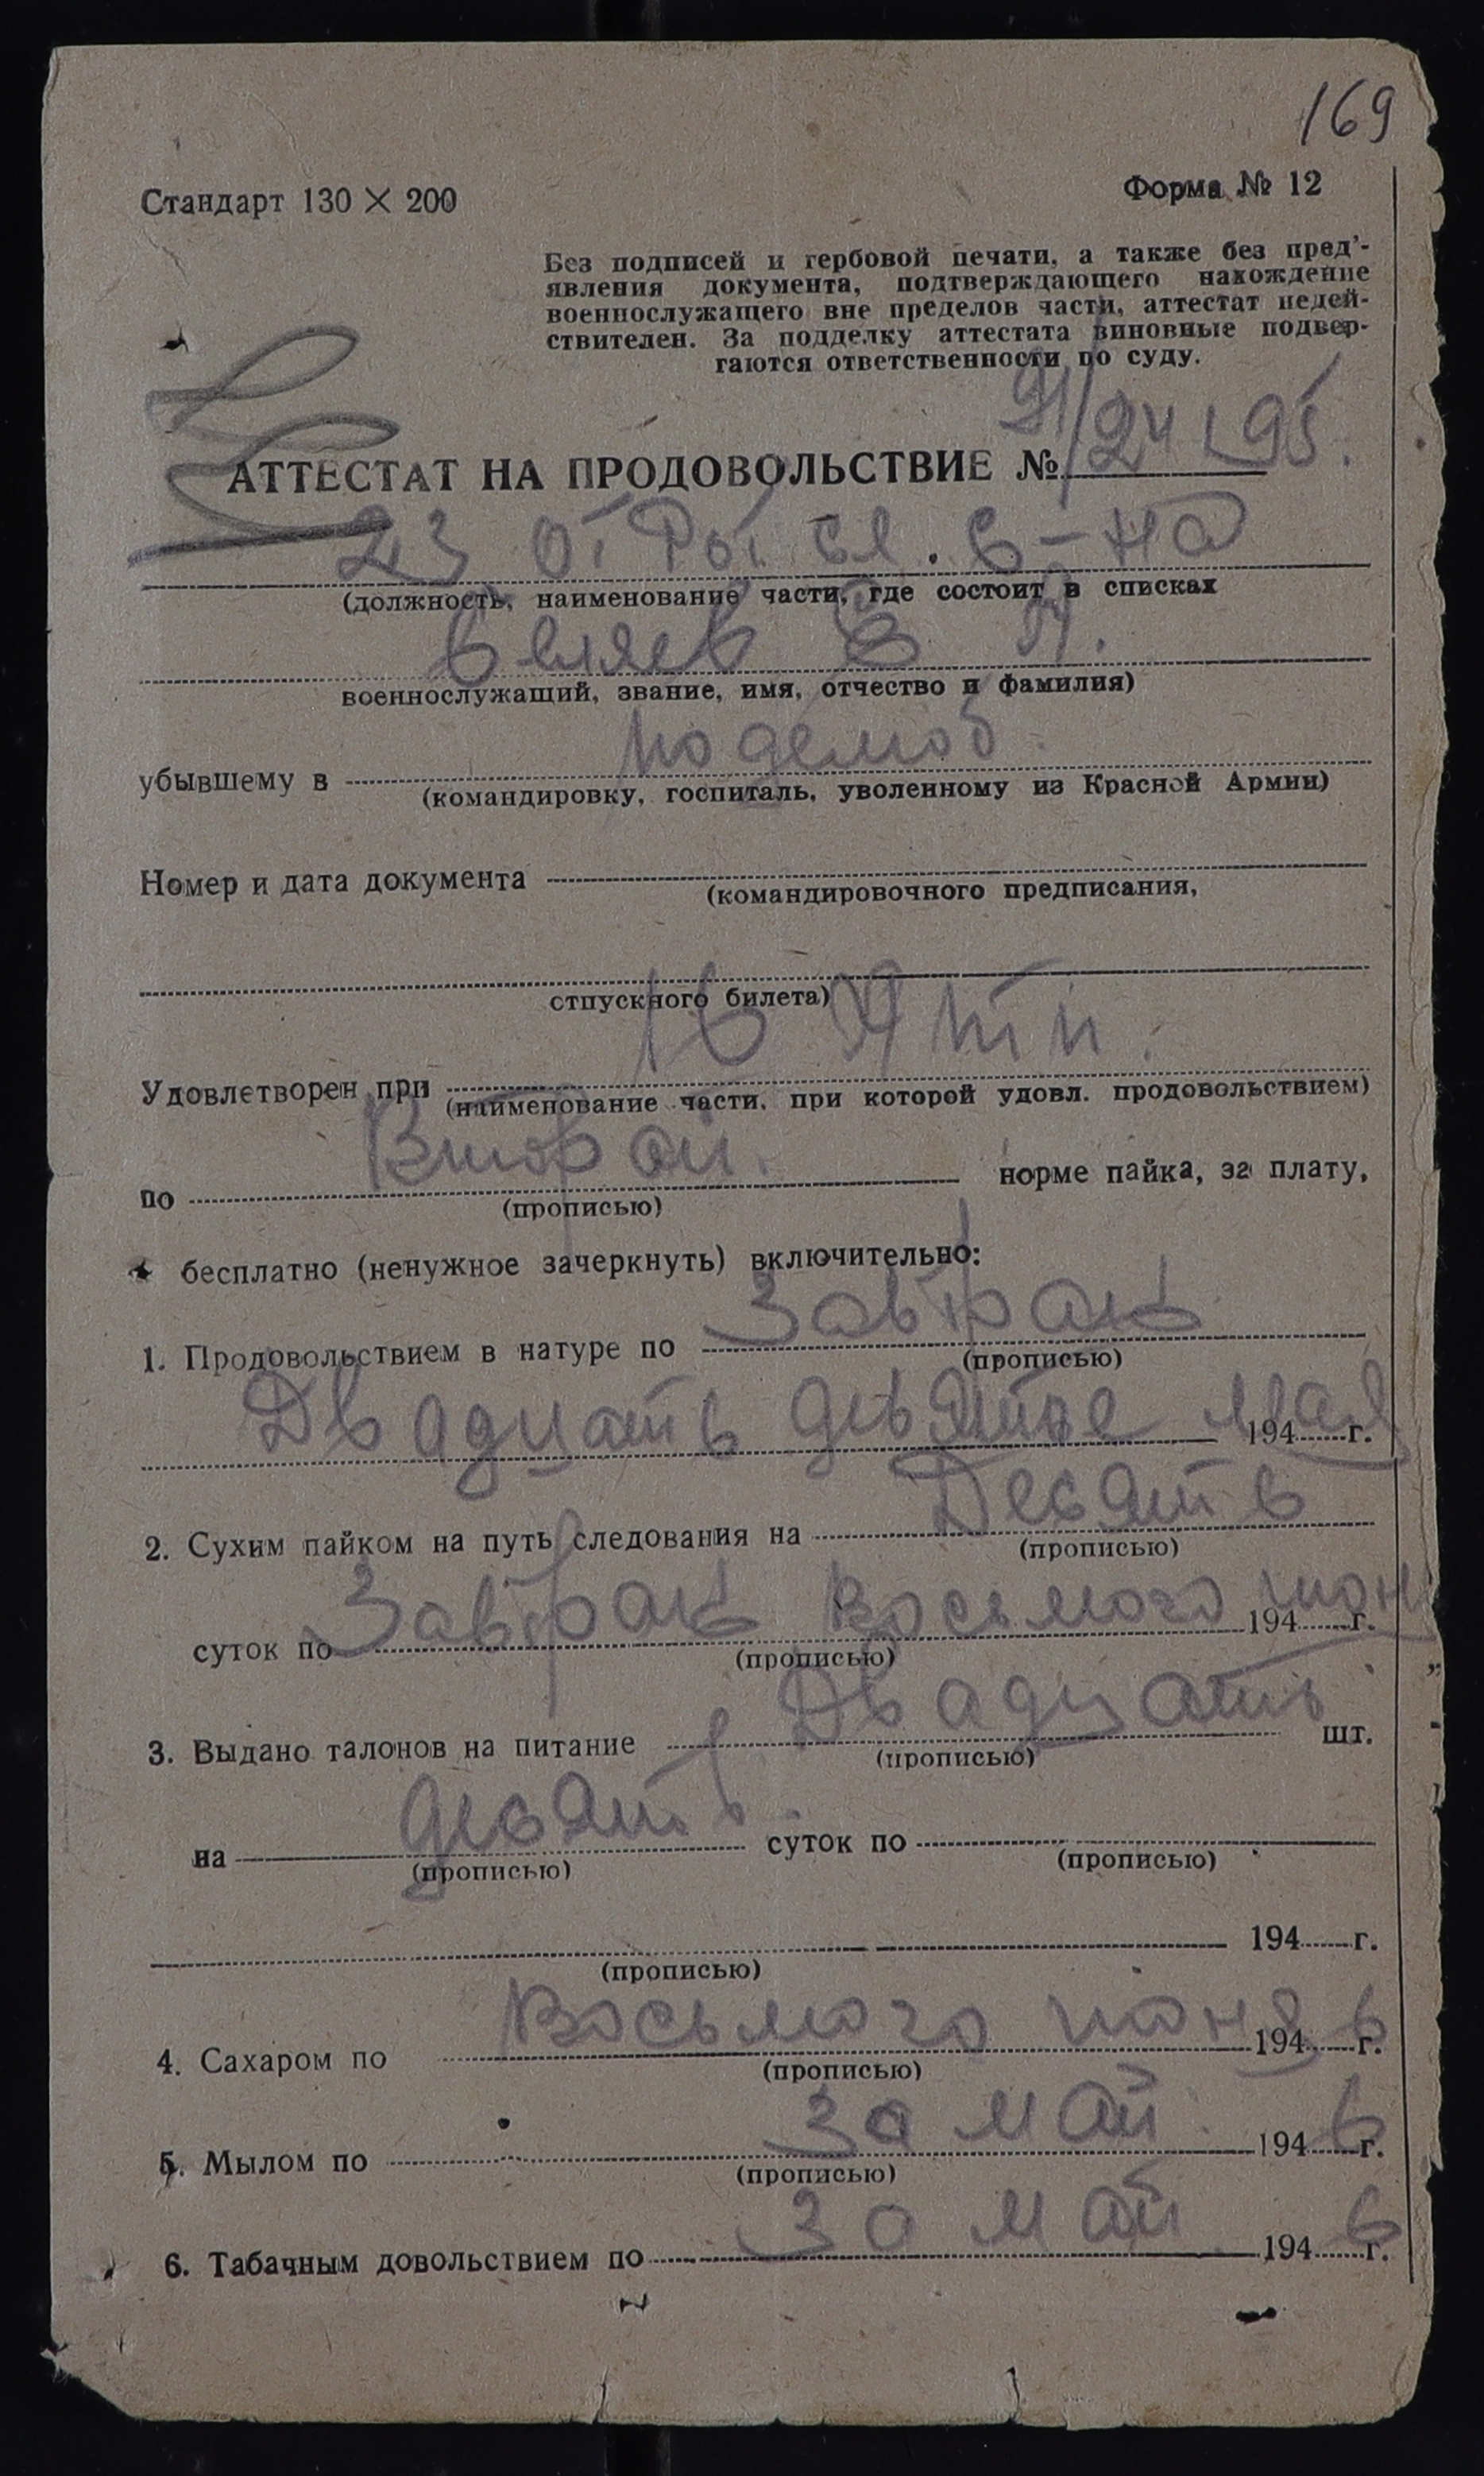 169
Стандарт 130 × 200
Форма № 12
Без подписей и гербовой печати, а также без пред'-
явления документа, подтверждающего нахождение
военнослужащего вне пределов части, аттестат недей-
ствителен. За подделку аттестата виновные подвер-
гаются ответственности по суду.
АТТЕСТАТ НА ПРОДОВОЛЬСТВИЕ №
23 от рот сл. с-на
(должность, наименование части, где состоит в списках
военнослужащий, звание, имя, отчество и фамилия)
убывшему в по демоб
(командировку, госпиталь, уволенному из Красной Армии)
Номер и дата документа
(командировочного предписания,
отпускного билета)
Удовлетворен при 16
(наименование части, при которой удовл. продовольствием)
по Второй норме пайка, за плату,
(прописью)
бесплатно (ненужное зачеркнуть) включительно:
1. Продовольствием в натуре по завтрак
(прописью)
Двадцать девятое мая 194 г.
2. Сухим пайком на путь следования на Десять
(прописью)
суток по Завтрак Восьмого июн 194 г.
(прописью)
3. Выдано талонов на питание Двадцать шт.
(прописью)
на десять суток по
(прописью) (прописью)
194 г.
(прописью)
4. Сахаром по Восьмого июня 194 6 г.
(прописью)
5. Мылом по за май 194 6 г.
(прописью)
6. Табачным довольствием по за май 194 6 г.